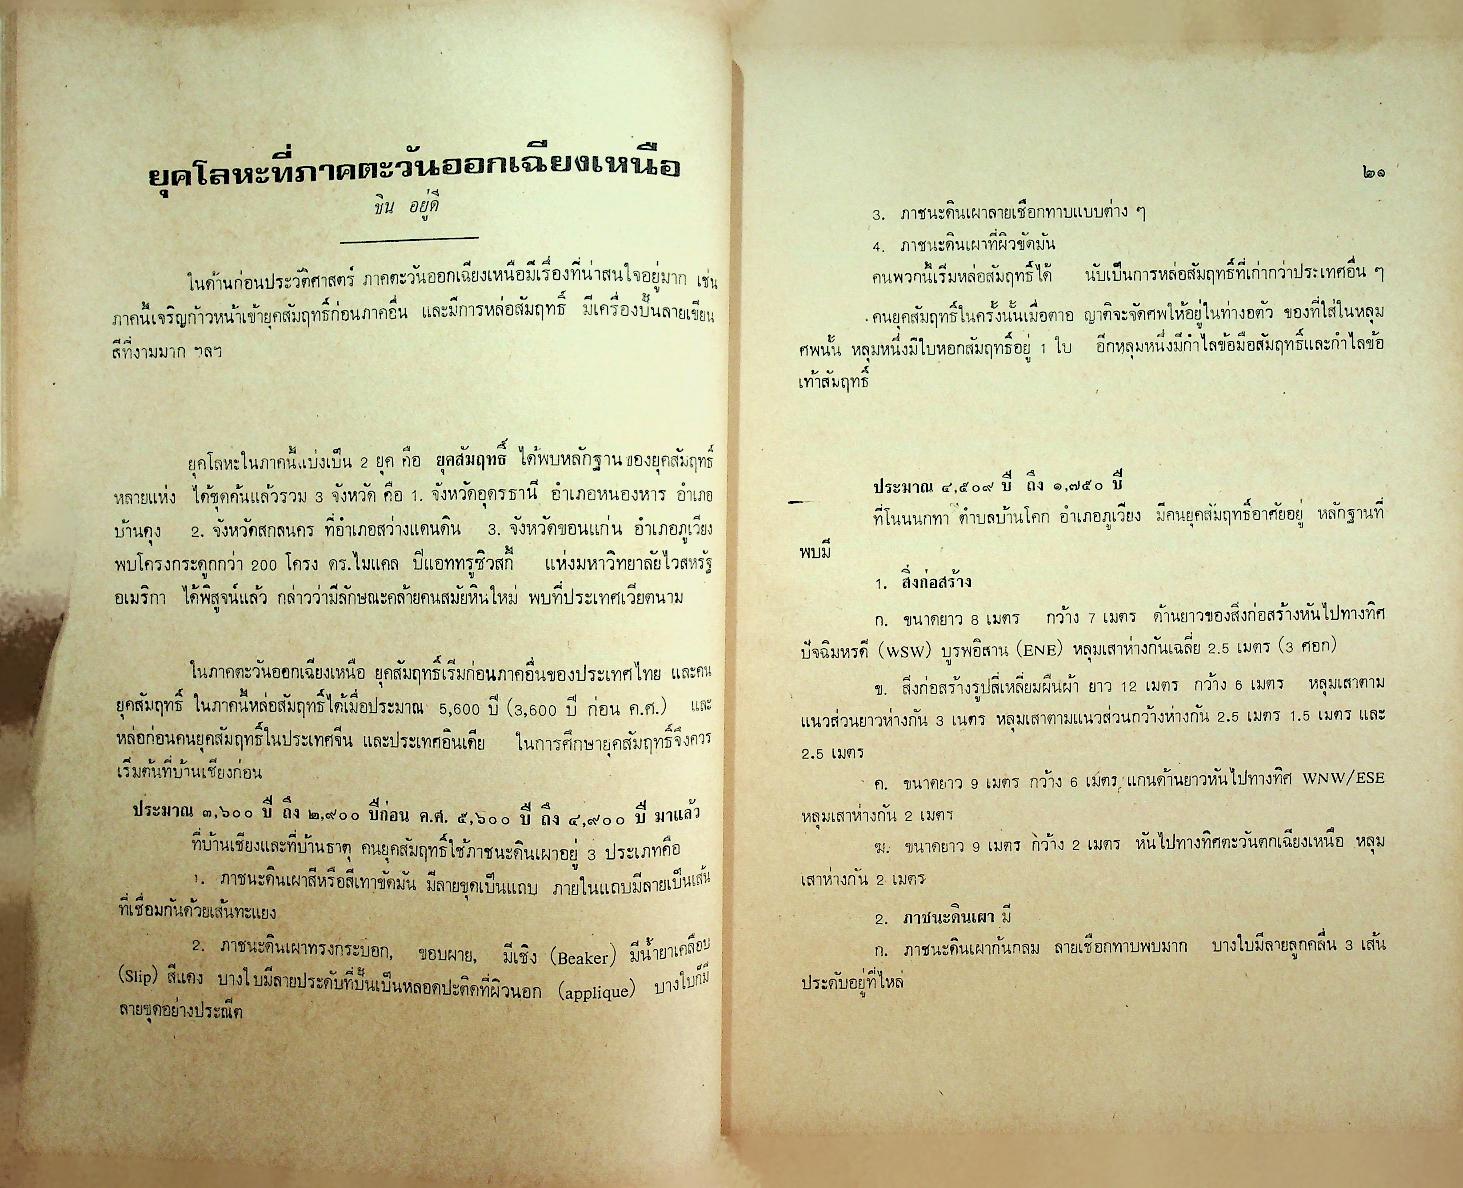 ยุคโลหะที่ภาคตะวันออกเฉียงเหนือ
ชิน อยู่ดี
ในด้านก่อนประวัติศาสตร์ ภาคตะวันออกเฉียงเหนือมีเรื่องที่น่าสนใจอยู่มาก เช่น
ภาคนี้เจริญก้าวหน้าเข้ายุคสัมฤทธิ์ก่อนภาคอื่น และมีการหล่อสัมฤทธิ์ มีเครื่องปั้นลายเขียน
สีที่งามมาก ฯลฯ
ยุคโลหะในภาคนี้แบ่งเป็น 2 ยุค คือ ยุคสัมฤทธิ์ ได้พบหลักฐานของยุคสัมฤทธิ์
หลายแห่ง ได้ขุดค้นแล้วรวม 3 จังหวัด คือ 1. จังหวัดอุดรธานี อำเภอหนองหาร อำเภอ
บ้านดุง 2. จังหวัดสกลนคร ที่อำเภอสว่างแดนดิน 3. จังหวัดขอนแก่น อำเภอภูเวียง
พบโครงกระดูกกว่า 200 โครง ดร.ไมแคล ปีแอททรูซิวสกี้ แห่งมหาวิทยาลัยไวสหรัฐ
อเมริกา ได้พิสูจน์แล้ว กล่าวว่ามีลักษณะคล้ายคนสมัยหินใหม่ พบที่ประเทศเวียดนาม
ในภาคตะวันออกเฉียงเหนือ ยุคสัมฤทธิ์เริ่มก่อนภาคอื่นของประเทศไทย และคน
ยุคสัมฤทธิ์ ในภาคนี้หล่อสัมฤทธิ์ได้เมื่อประมาณ 5,600 ปี (3,600 ปี ก่อน ค.ศ.) และ
หล่อก่อนคนยุคสัมฤทธิ์ในประเทศจีน และประเทศอินเดีย ในการศึกษายุคสัมฤทธิ์จึงควร
เริ่มต้นที่บ้านเชียงก่อน
ประมาณ ๓,๖๐๐ ปี ถึง ๒,๙๐๐ ปีก่อน ค.ศ. ๕,๖๐๐ ปี ถึง ๔,๙๐๐ ปี มาแล้ว
ที่บ้านเชียงและที่บ้านธาตุ คนยุคสัมฤทธิ์ใช้ภาชนะดินเผาอยู่ 3 ประเภทคือ
1. ภาชนะดินเผาสีหรือสีเทาขัดมัน มีลายขุดเป็นแถบ ภายในแถบมีลายเป็นเส้น
ที่เชื่อมกันด้วยเส้นทะแยง
2. ภาชนะดินเผาทรงกระบอก, ขอบผาย, มีเชิง (Beaker) มีน้ำยาเคลือบ
(Slip) สีแดง บางใบมีลายประดับที่ปั้นเป็นหลอดปะติดที่ผิวนอก (applique) บางใบก็มี
ลายขุดอย่างประณีต
๒๑
3. ภาชนะดินเผาลายเชือกทาบแบบต่าง ๆ
4. ภาชนะดินเผาที่ผิวขัดมัน
คนพวกนี้เริ่มหล่อสัมฤทธิ์ได้ นับเป็นการหล่อสัมฤทธิ์ที่เก่ากว่าประเทศอื่น ๆ
คนยุคสัมฤทธิ์ในครั้งนั้นเมื่อตาย ญาติจะจัดศพให้อยู่ในท่างอตัว ของที่ใส่ในหลุม
ศพนั้น หลุมหนึ่งมีใบหอกสัมฤทธิ์อยู่ 1 ใบ อีกหลุมหนึ่งมีกำไลข้อมือสัมฤทธิ์และกำไลข้อ
เท้าสัมฤทธิ์
ประมาณ ๔,๕๐๙ ปี ถึง ๑,๗๕๐ ปี
ที่โนนนกทา ตำบลบ้านโคก อำเภอภูเวียง มีคนยุคสัมฤทธิ์อาศัยอยู่ หลักฐานที่
พบมี
1. สิ่งก่อสร้าง
ก. ขนาดยาว 8 เมตร กว้าง 7 เมตร ด้านยาวของสิ่งก่อสร้างหันไปทางทิศ
ปัจฉิมหรดี (WSW) บูรพอิสาน (ENE) หลุมเสาห่างกันเฉลี่ย 2.5 เมตร (3 ศอก)
ข. สิ่งก่อสร้างรูปสี่เหลี่ยมผืนผ้า ยาว 12 เมตร กว้าง 6 เมตร หลุมเสาตาม
แนวส่วนยาวห่างกัน 3 เมตร หลุมเสาตามแนวส่วนกว้างห่างกัน 2.5 เมตร 1.5 เมตร และ
2.5 เมตร
ค. ขนาดยาว 9 เมตร กว้าง 6 เมตร แกนด้านยาวหันไปทางทิศ WNW/ESE
หลุมเสาห่างกัน 2 เมตร
ฆ. ขนาดยาว 9 เมตร กว้าง 2 เมตร หันไปทางทิศตะวันตกเฉียงเหนือ หลุม
เสาห่างกัน 2 เมตร
2. ภาชนะดินเผา มี
ก. ภาชนะดินเผาก้นกลม ลายเชือกทาบพบมาก บางใบมีลายลูกคลื่น 3 เส้น
ประดับอยู่ที่ไหล่